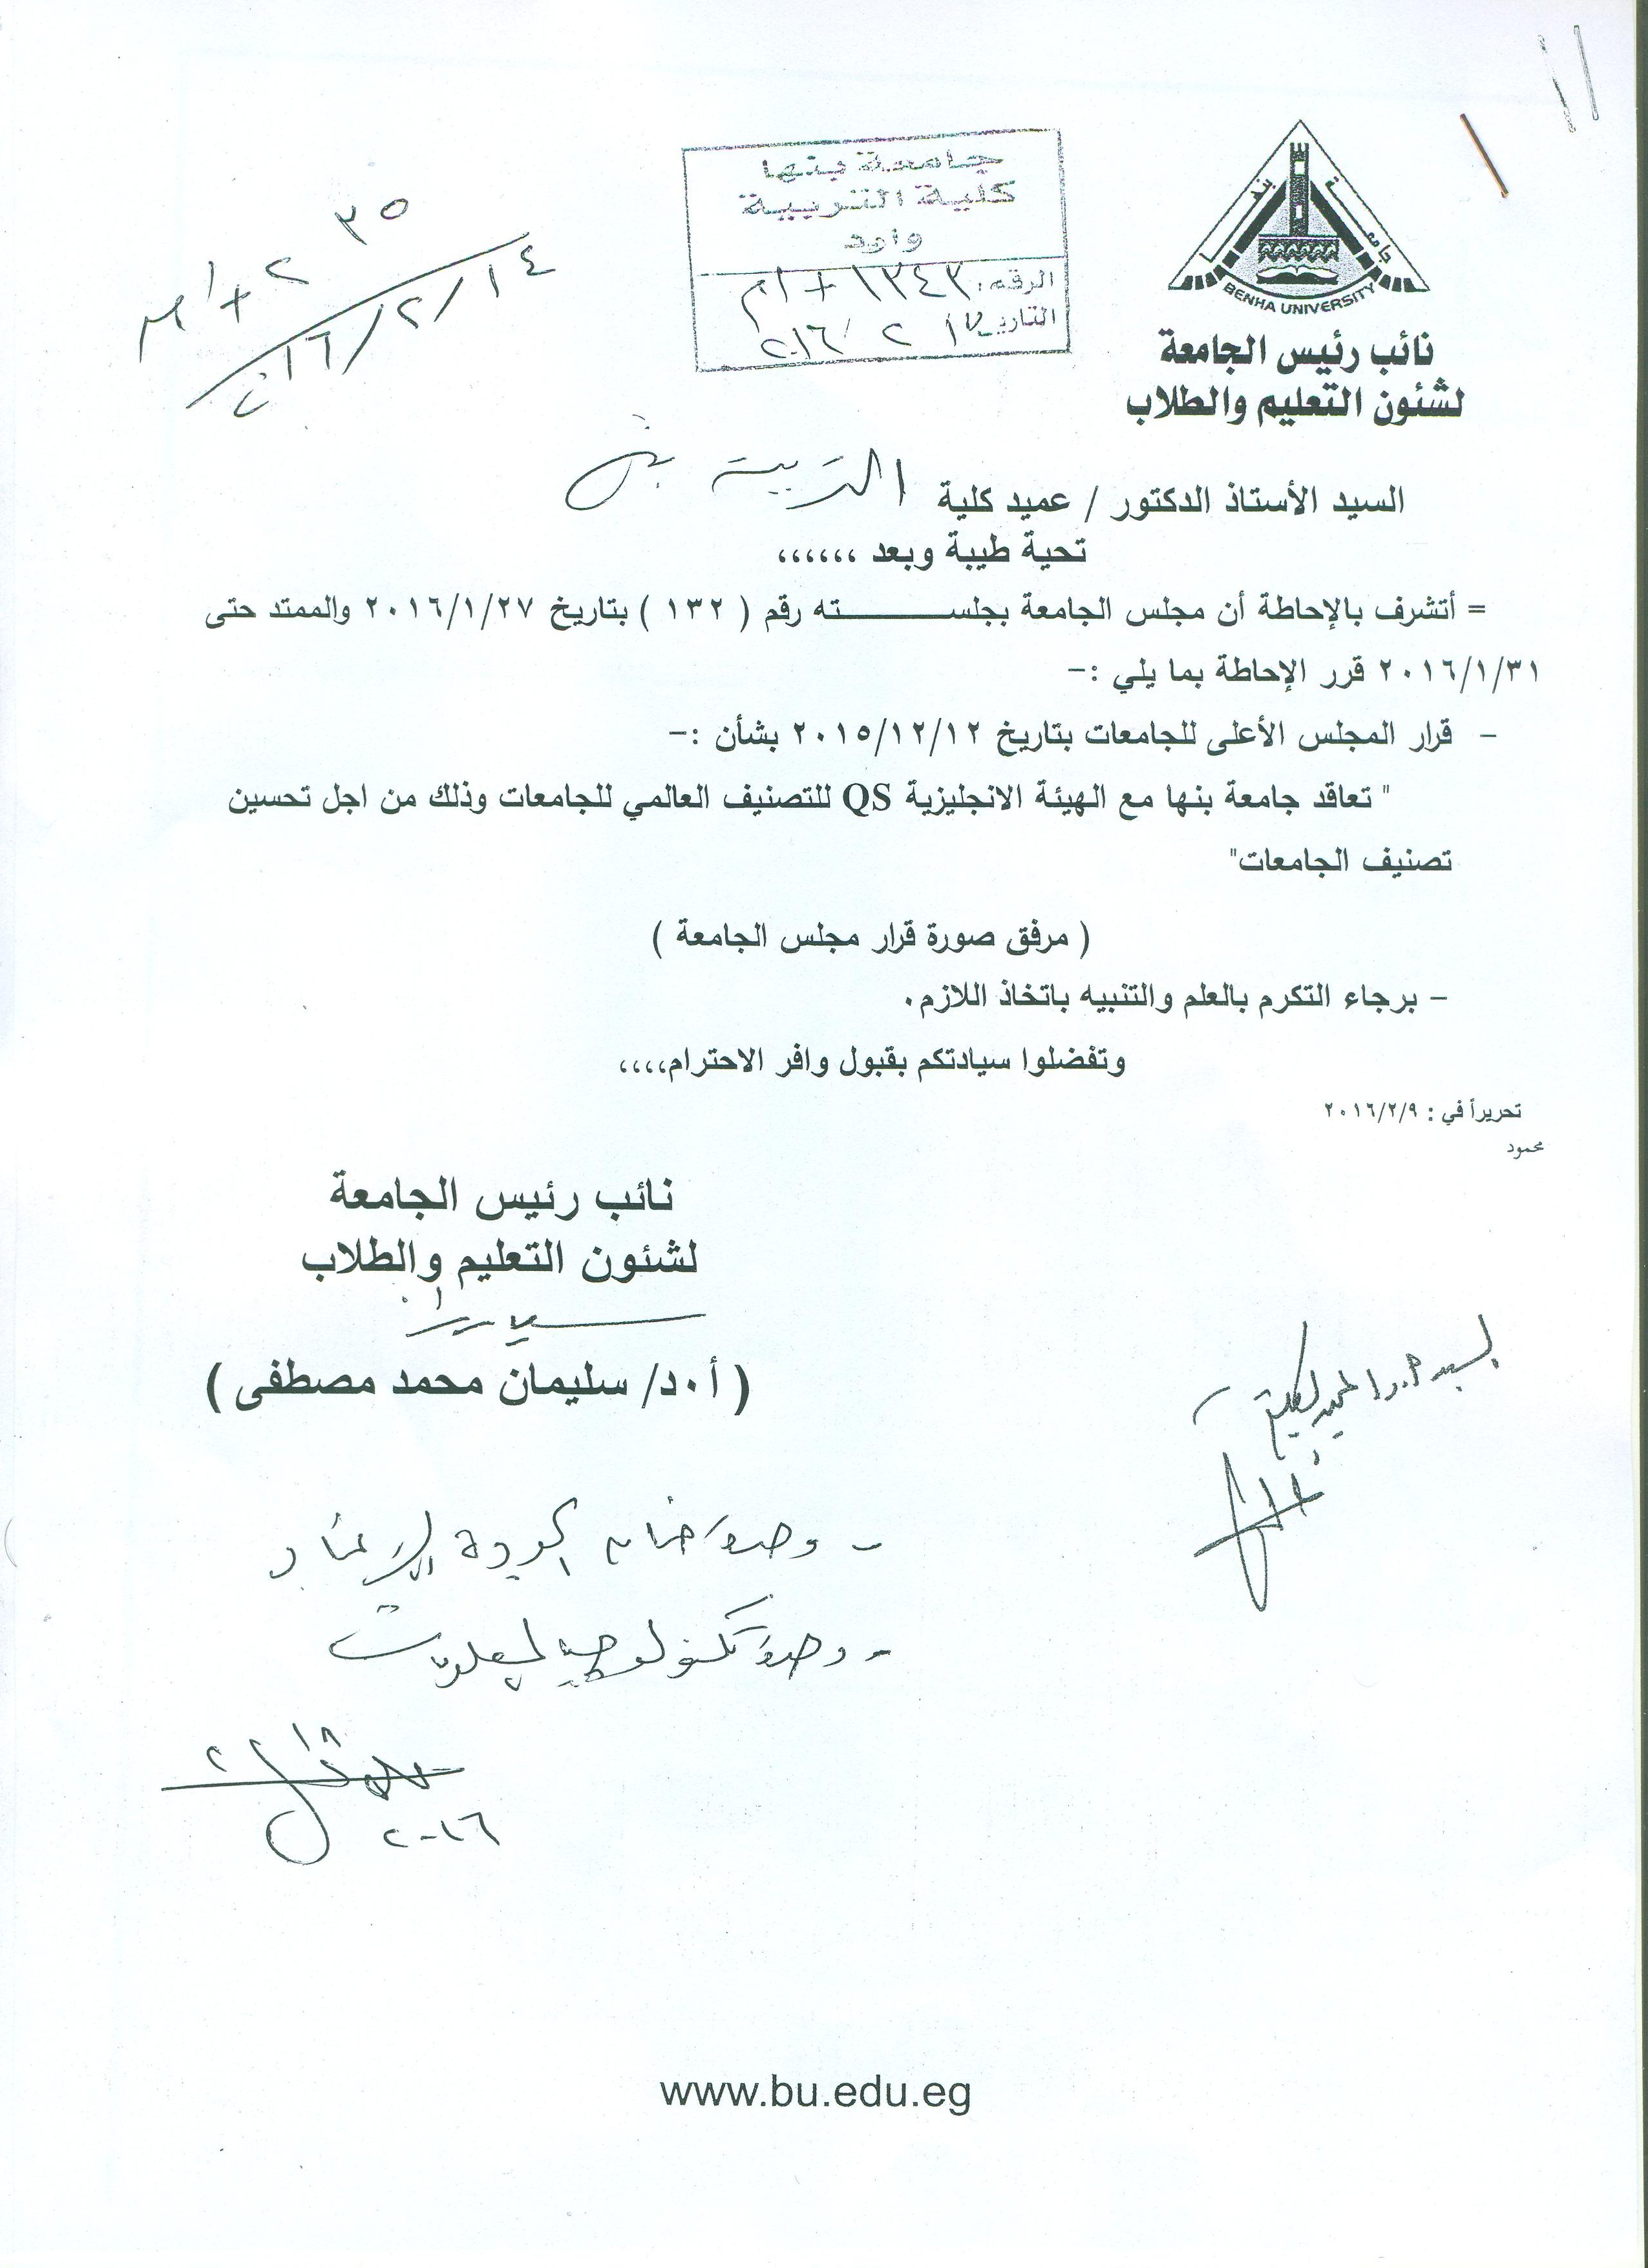 جامعة بنها
BENHA UNIVERSITY
نائب رئيس الجامعة
لشئون التعليم والطلاب
جامعة بنها
كلية التربية
وارد
الرقم: ١٣٤٣ + ١م
التاريخ ١٧ / ٢ / ٢٠١٦
٣٥
٢ + ١م
٢٠١٦/٢/١٤
السيد الأستاذ الدكتور / عميد كلية التربية
تحية طيبة وبعد ،،،،،،
= أتشرف بالإحاطة أن مجلس الجامعة بجلســـــــــته رقم ( ١٣٢ ) بتاريخ ٢٠١٦/١/٢٧ والممتد حتى
٢٠١٦/١/٣١ قرر الإحاطة بما يلي :-
- قرار المجلس الأعلى للجامعات بتاريخ ٢٠١٥/١٢/١٢ بشأن :-
" تعاقد جامعة بنها مع الهيئة الانجليزية QS للتصنيف العالمي للجامعات وذلك من اجل تحسين
تصنيف الجامعات"
( مرفق صورة قرار مجلس الجامعة )
- برجاء التكرم بالعلم والتنبيه باتخاذ اللازم.
وتفضلوا سيادتكم بقبول وافر الاحترام،،،،
تحريراً في : ٢٠١٦/٢/٩
محمود
نائب رئيس الجامعة
لشئون التعليم والطلاب
( أ.د/ سليمان محمد مصطفى )
- وحدة ضمان الجودة والاعتماد
- وحدة تكنولوجيا المعلومات
٢٠١٦
www.bu.edu.eg